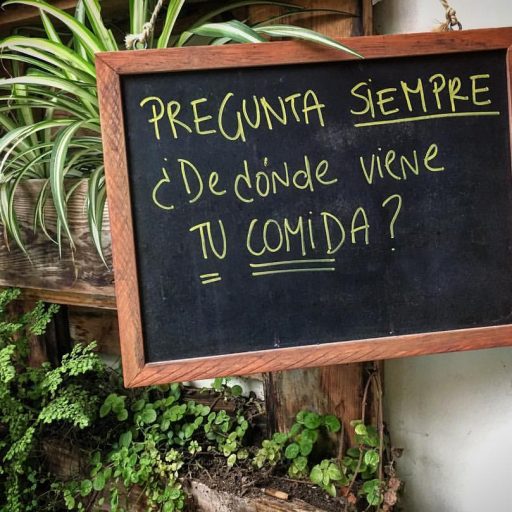 PREGUNTA SIEMPRE
¿De dónde viene
TU COMIDA?